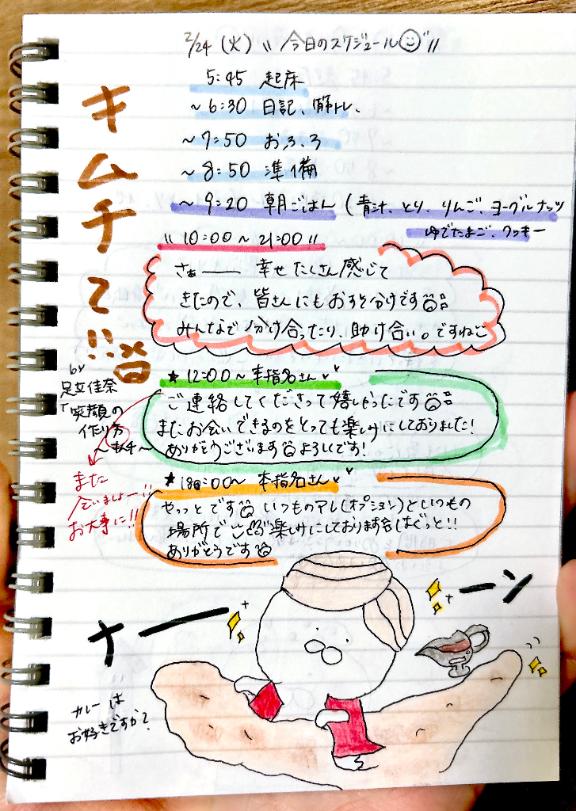 2/24 (火) \\ 今日のスケジュール //
5:45 起床
~6:30 日記、筋トレ、
~7:50 おふろ
~8:50 準備
~9:20 朝ごはん (青汁、とり、りんご、ヨーグルナッツ
ゆでたまご、クッキー
\\ 10:00~21:00 \\
さぁー 幸せたくさん感じて
きたので、皆さんにもおすそ分けです
みんなで分け合ったり、助け合い。ですねこ
★ 12:00~ 本指名さん
ご連絡してくださって嬉しかったです
またお会いできるのをとっても楽しみにしておりました!
ありがとうございます よろしくです!
★ 18:00~ 本指名さん
やっっとです いつものアレ(オプション)といつもの
場所で 楽しみにしております はぐっと!!
ありがとうです
キムチで!!
by
足立佳奈
「笑顔の
作り方
~キムチ~
また
でいましょー!!
お大事に!!
ナーーン
カレーは
お好きですか?